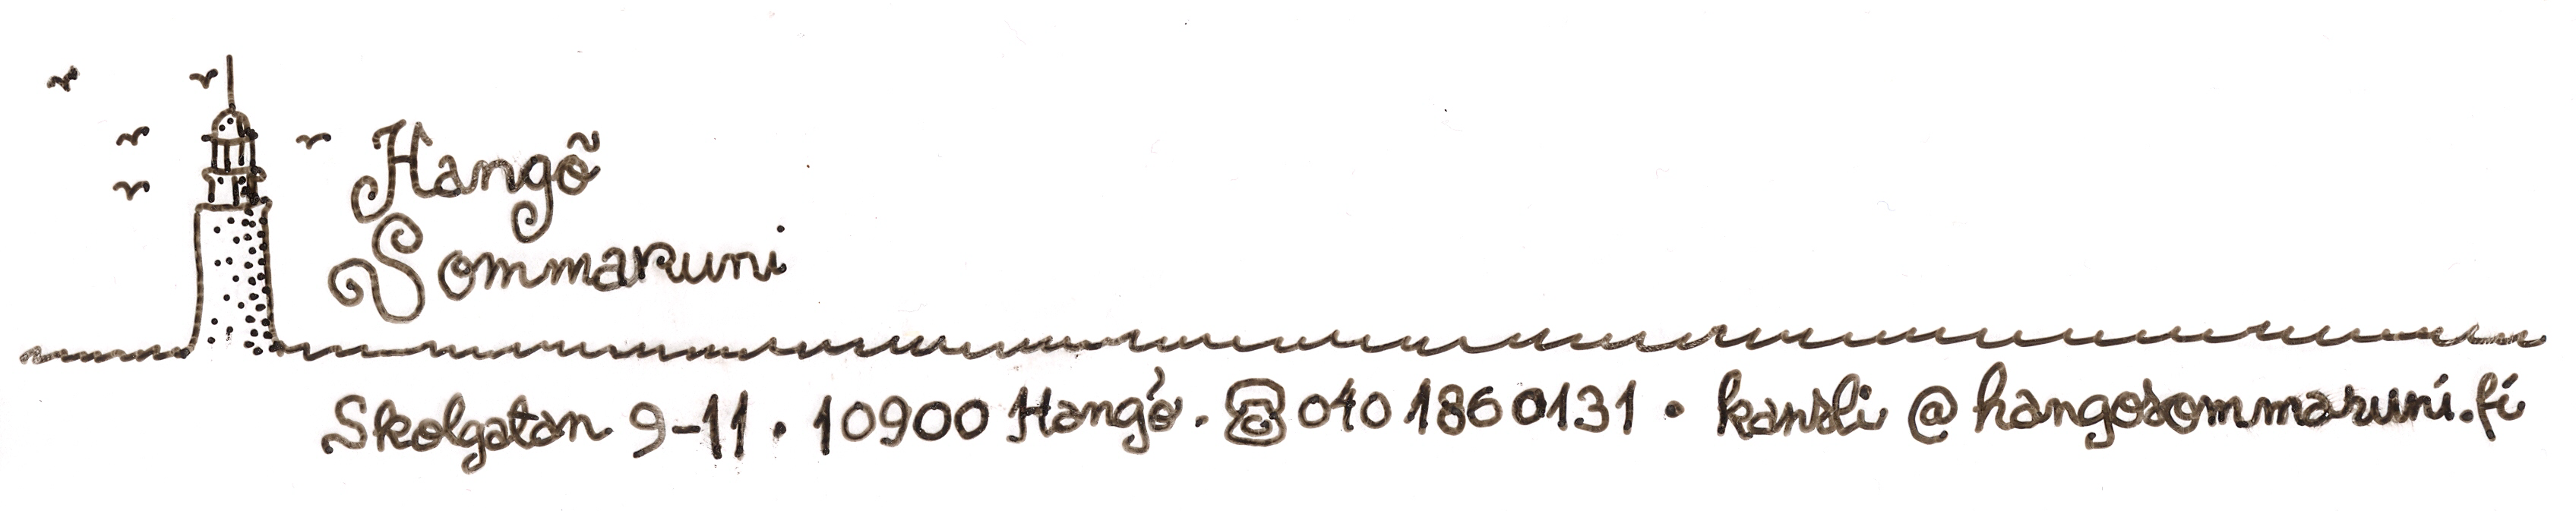 Hangö
Sommaruni
Skolgatan 9-11 · 10900 Hangö · ☎ 040 1860131 · kansli@hangosommaruni.fi